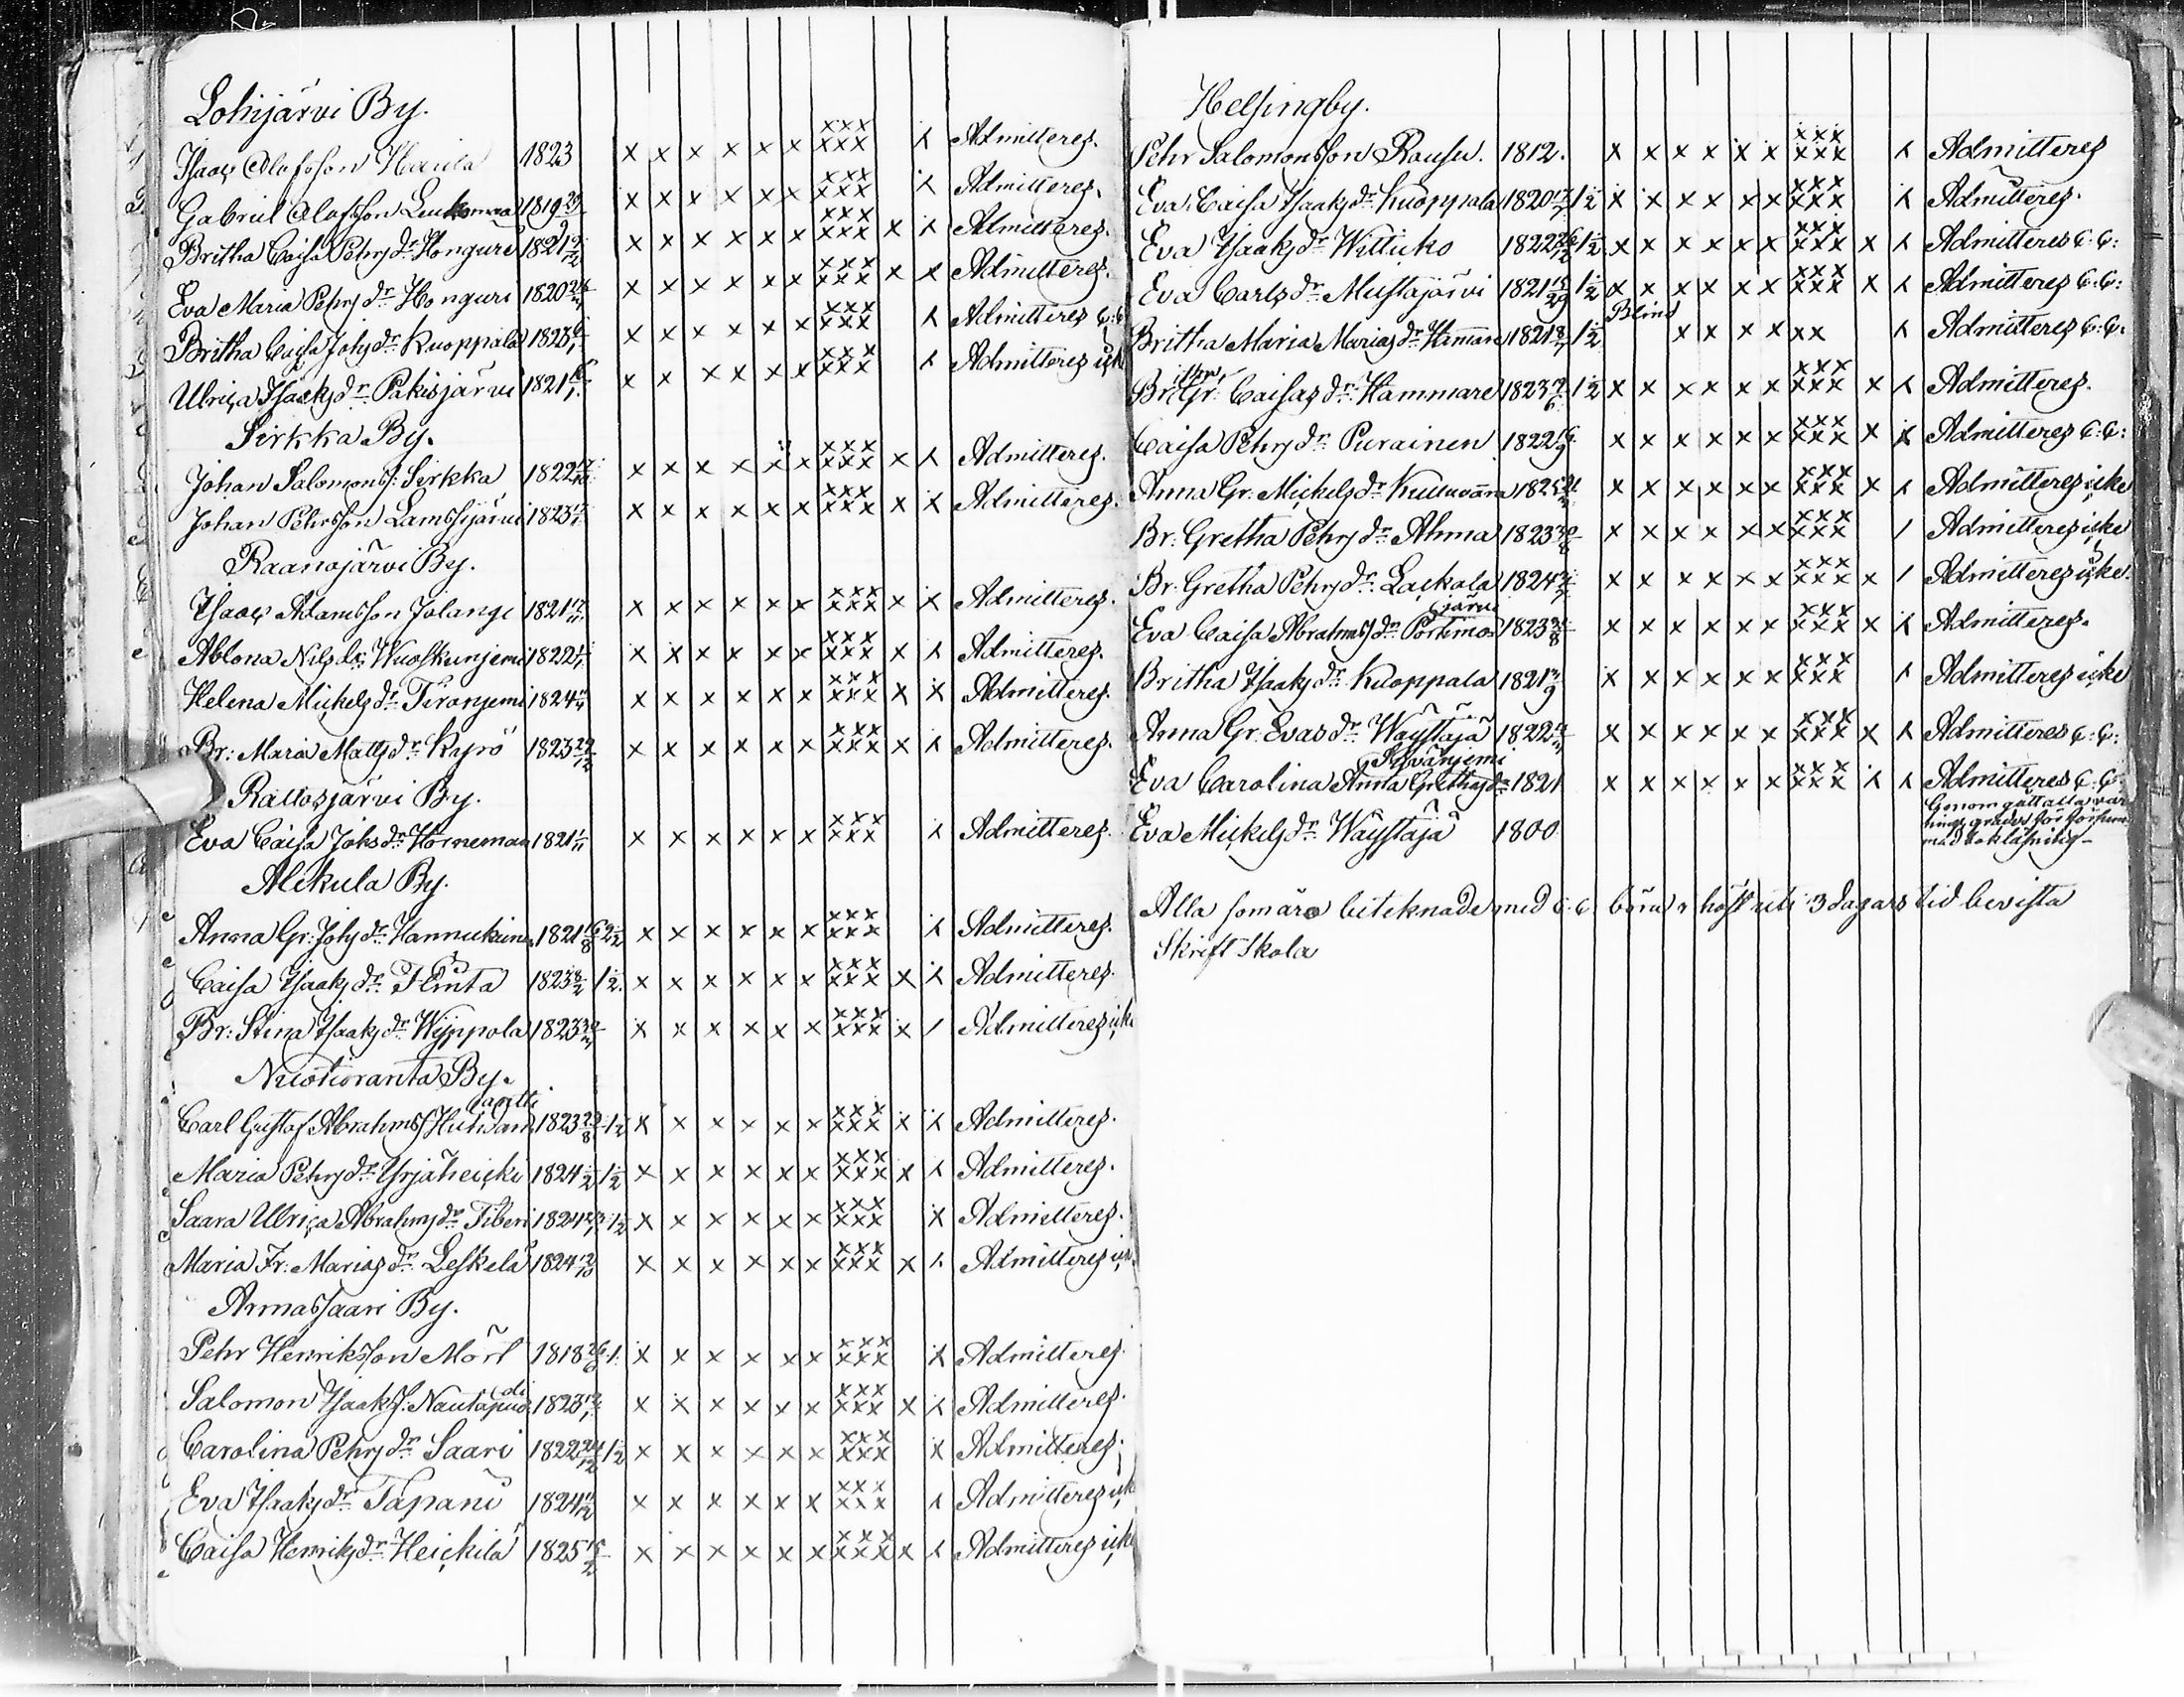 Lohijärvi By.
Isaac Olofsson Hanla 1823 x x x x x x xxx xxx x Admitteres.
Gabriel Olofsson 1819 x x x x x x xxx xxx x Admitteres.
Britha Caisa Pehrs dr Honguri 1821 x x x x x x xxx xxx x x Admitteres.
Eva Maria Pehrs dr Honguri 1820 x x x x x x xxx xxx x x Admitteres.
Britha Caisa Johs dr Kuoppala 1823 x x x x x x xxx xxx x Admitteres C:C
Ulrica Isacks dr Pakisjärvi 1821 x x x x x x xxx xxx x Admitteres ick
Sirkka By.
Johan Salomons: Sirkka 1822 x x x x x x xxx xxx x x Admitteres.
Johan Pehrsson Lamssijärvi 1823 x x x x x x xxx xxx x x Admitteres.
Raanojärvi By.
Isaac Adamsson Jolangi 1821 x x x x x x xxx xxx x x Admitteres.
Ablona Nils dr 1822 x x x x x x xxx xxx x x Admitteres.
Helena Mickels dr Tiranjemi 1824 x x x x x x xxx xxx x x Admitteres.
Br: Maria Matts dr Kyrö 1823 x x x x x x xxx xxx x x Admitteres.
Rattosjärvi By.
Eva Caisa Johs dr Horneman 1821 x x x x x x xxx xxx x Admitteres.
Alekula By.
Anna Gr: Johs dr 1821 x x x x x x xxx xxx x Admitteres.
Caisa Isaaks dr Flinta 1823 1½ x x x x x x xxx xxx x x Admitteres.
Br: Stina Isaaks dr Wyppola 1823 x x x x x x xxx xxx x / Admitteres icke
Nuotioranta By.
Carl Gustaf Abrahms: 1823 29/8 1½ x x x x x x xxx xxx x x Admitteres.
Maria Pehrs dr Yrjäheicki 1824 1½ x x x x x x xxx xxx x x Admitteres.
Saara Ulrica Abrahms dr Fiberi 1824 1½ x x x x x x xxx xxx x Admitteres.
Maria Fr: Marias dr Leskelä 1824 x x x x x x xxx xxx x x Admitteres
Armassaari By.
Pehr Henriksson Mört 1818 1 x x x x x x xxx xxx x Admitteres.
Salomon Isaaks: Nautapudi 1823 x x x x x x xxx xxx x x Admitteres.
Carolina Pehrs dr Saari 1822 24/12 1½ x x x x x x xxx xxx x Admitteres.
Eva Isaaks dr Tapani 1824 x x x x x x xxx xxx x Admitteres ick
Caisa Henriks dr Heickilä 1825 x x x x x x xxx xxx x x Admitteres icke
Helsingby.
Pehr Salomonsson Rousu. 1812. x x x x x x xxx xxx x Admitteres
Eva Caisa Isaaks dr Kuoppala 1820 1½ x x x x x x xxx xxx x Admitteres.
Eva Isaaks dr Wittiko 1822 1½ x x x x x x xxx xxx x x Admitteres C:C:
Eva Carls dr Mustajärvi 1821 1½ x x x x x x xxx xxx x x Admitteres C:C:
Britha Maria Marias dr Hammare 1821 1½ Blind x x x x xx x Admitteres C:C:
Br: Gr: Caisas dr Hammare 1823 1½ x x x x x x xxx xxx x x Admitteres.
Caisa Pehrs dr Purainen 1822 x x x x x x xxx xxx x x Admitteres C:C:
Anna Gr: Mickels dr 1825 x x x x x x xxx xxx x x Admitteres icke
Br: Gretha Pehrs dr Ahma 1823 x x x x x x xxx xxx / Admitteres icke
Br: Gretha Pehrs dr Lackala 1824 x x x x x x xxx xxx x / Admitteres icke.
Eva Caisa Abrahms dr Portimojärvi 1823 x x x x x x xxx xxx x x Admitteres.
Britha Isaaks dr Kuoppala 1821 x x x x x x xxx xxx x Admitteres icke
Anna Gr: Evas dr Wäystäjä 1822 x x x x x x xxx xxx x x Admitteres C:C:
Eva Carolina Anna Grethas dr 1821 x x x x x x xxx xxx x x Admitteres C:C:
Eva Mickels dr Wäystäjä 1800 Genomgått alla var
nings grader för försum
mad bokläsning
Alla som äro biteknade med C:C: böra i höst uti 3 dagars tid bevista
Skrift Skola